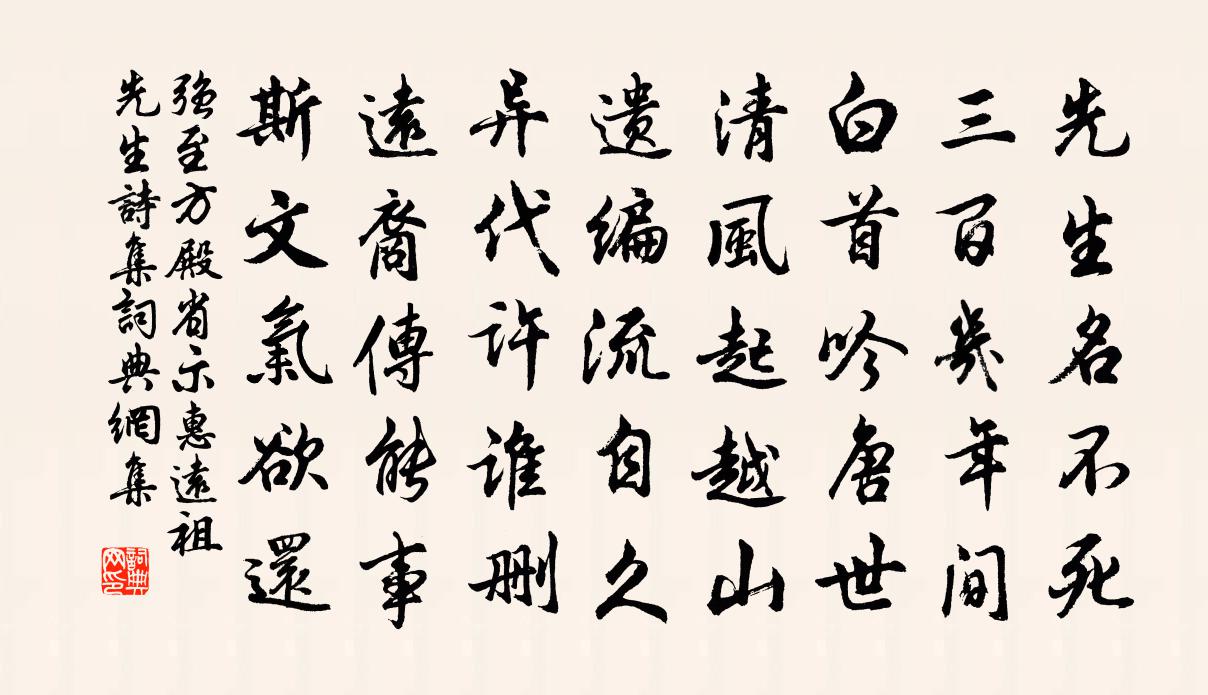 先生名不死
三百幾年間
白首吟唐世
清風起越山
遗编流自久
异代许谁删
遠裔傳能事
斯文氣欲還
強至方殿省示惠遠祖
先生詩集詞典網集
詞典网印